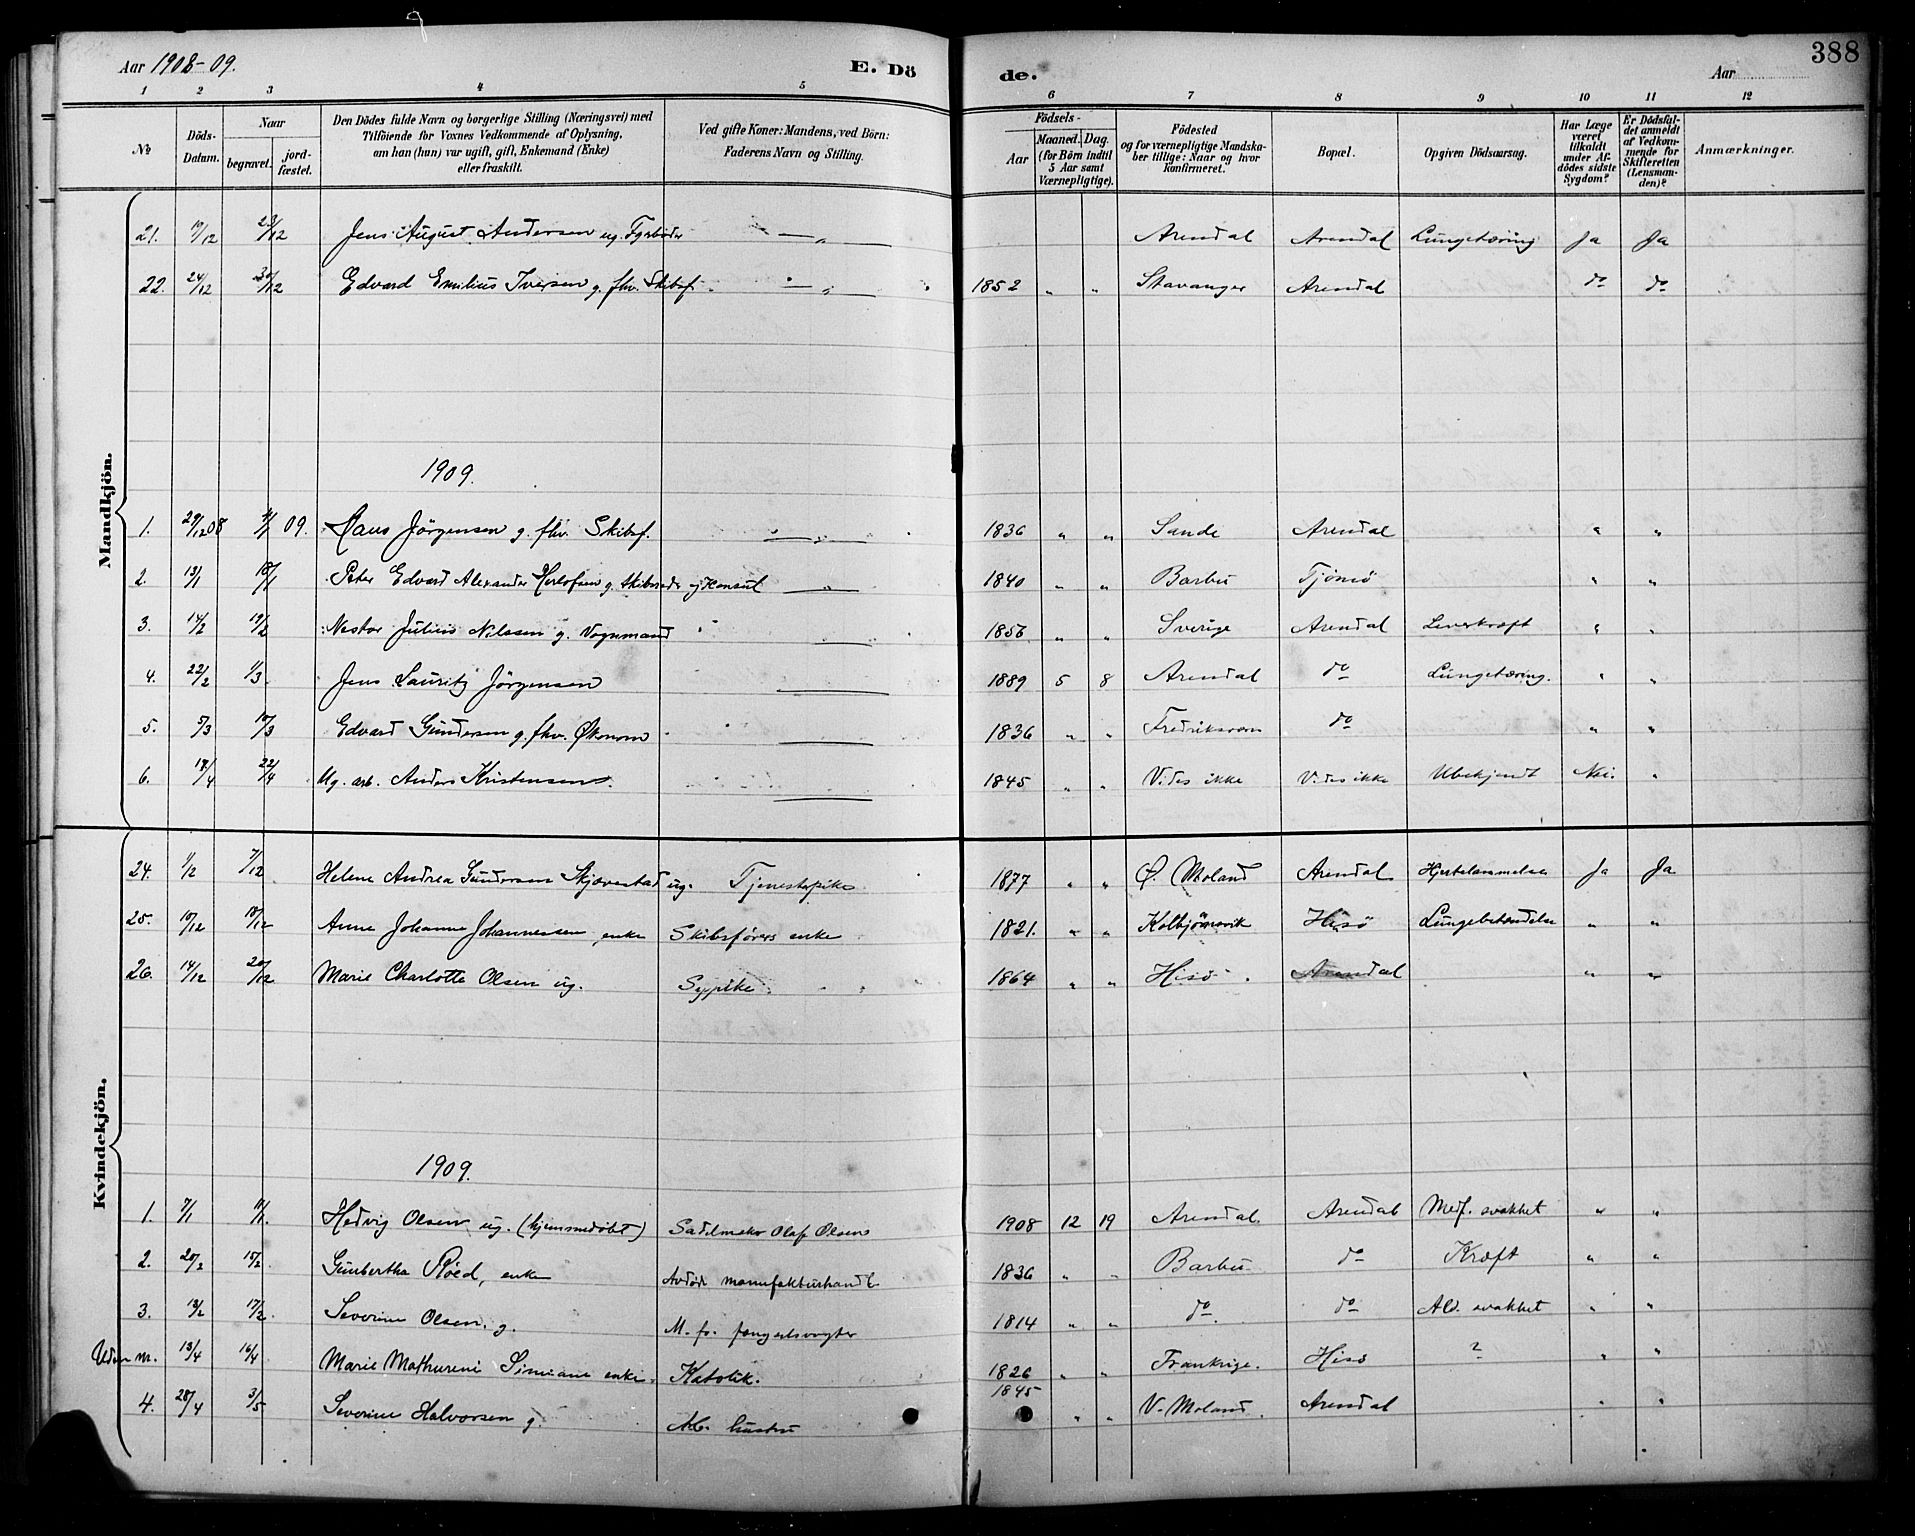 Aar 1908-09.
E. Dö
de.
Aar
388
1 2 3 4 5 6 7 8 9 10 11 12
No
Döds-Datum.
Naar
begravet.
jord-fæstet.
Den Dödes fulde Navn og borgerlige Stilling (Næringsvei) med
Tilföiende for Voxnes Vedkommende af Oplysning,
om han (hun) var ugift, gift, Enkemand (Enke)
eller fraskilt.
Ved gifte Koner: Mandens, ved Börn:
Faderens Navn og Stilling.
Födsels-
Aar
Maaned. Dag.
(for Börn indtil
5 Aar samt
Værnepligtige).
Födested
og for værnepligtige Mandska-
ber tillige: Naar og hvor
konfirmeret.
Bopæl.
Opgiven Dödsaarsag.
Har Læge
været
tilkaldt
under Af-
dödes sidste
Sygdom?
Er Dödsfal-
det anmeldt
af Vedkom-
mende for
Skifteretten
(Lensman-
den)?
Anmærkninger.
Mandkjön.
21. 19/12 23/12 Jens August Andersen ug. Fyrböder — „ — Arendal Arendal Lungetæring Ja Ja
22. 24/12 30/12 Edvard Emilius Iversen g. fhv. Skibsf. — „ — 1852 „ „ Stavanger Arendal do do
1909.
1. 29/12 08 4/1 09. Hans Jörgensen g. fhv. Skibsf. — „ — 1836 „ „ Sande Arendal „ „
2. 13/1 18/1 Peter Edvard Alexander Herlofsen g. Skibsreder og Konsul — „ — 1840 „ „ Barbu Tjömö „ „
3. 14/2 19/2 Nestor Julius Nilssen g. Vognmand „ 1856 „ „ Sverige Arendal Leverkræft „ „
4. 22/2 1/3 Jens Lauritz Jörgensen — 1889 5 8 Arendal do Lungetæring. „ „
5. 5/3 10/3 Edvard Gundersen g. fhv. Økonom — 1836 „ „ Fredriksværn do „ „
6. 18/4 22/4 Ug. arb. Anders Kristensen. — 1845 „ „ Vides ikke Vides ikke Ubekjendt Nei. „
Kvindekjön.
24. 1/12 7/12 Helene Andrea Gundersen Skjævestad ug. Tjenestepike 1877 „ „ Ø. Moland Arendal Hjertelammelse Ja Ja
25. 10/12 18/12 Anne Johanne Johannessen enke Skibsförers enke 1821. „ „ Kolbjörnsvik Hisö Lungebetændelse „ „
26. 14/12 20/12 Marie Charlotte Olsen ug. Sypike. 1864 „ „ Hisö Arendal „ „
1909.
1. 7/1 11/1. Hedvig Olsen ug. (hjemmedøbt) Sadelmaker Olaf Olsens 1908 12 19 Arendal. Arendal Medf. svakhet „ „
2. 20/2 15/2. Gunbertha Röed, enke Avdöde manufakturhandl. 1836 „ „ Barbu do Kræft „ „
3. 13/2 17/2. Severine Olsen. g. M. fv. fengselsvogter 1814 „ „ do. do Ald. svakhet „ „
Uden nr. 13/4 16/4 Marie Mathurine Simiane enke. Katolik. 1826 „ „ Frankrige. Hisö ? „ „
4. 28/4 3/5 Severine Halvorsen g. Arb. hustru 1845 „ „ V. Moland. Arendal „ „